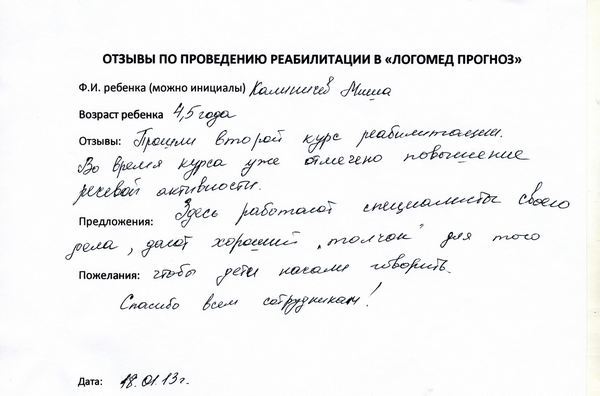 ОТЗЫВЫ ПО ПРОВЕДЕНИЮ РЕАБИЛИТАЦИИ В «ЛОГОМЕД ПРОГНОЗ»
Ф.И. ребенка (можно инициалы) Калиничев Миша
Возраст ребенка 4,5 года
Отзывы: Прошли второй курс реабилитации.
Во время курса уже отмечено повышение
речевой активности.
Предложения: Здесь работают специалисты своего
дела, дают хороший „толчок" для того
Пожелания: чтобы дети начали говорить.
Спасибо всем сотрудникам!
Дата: 18.01.13г.